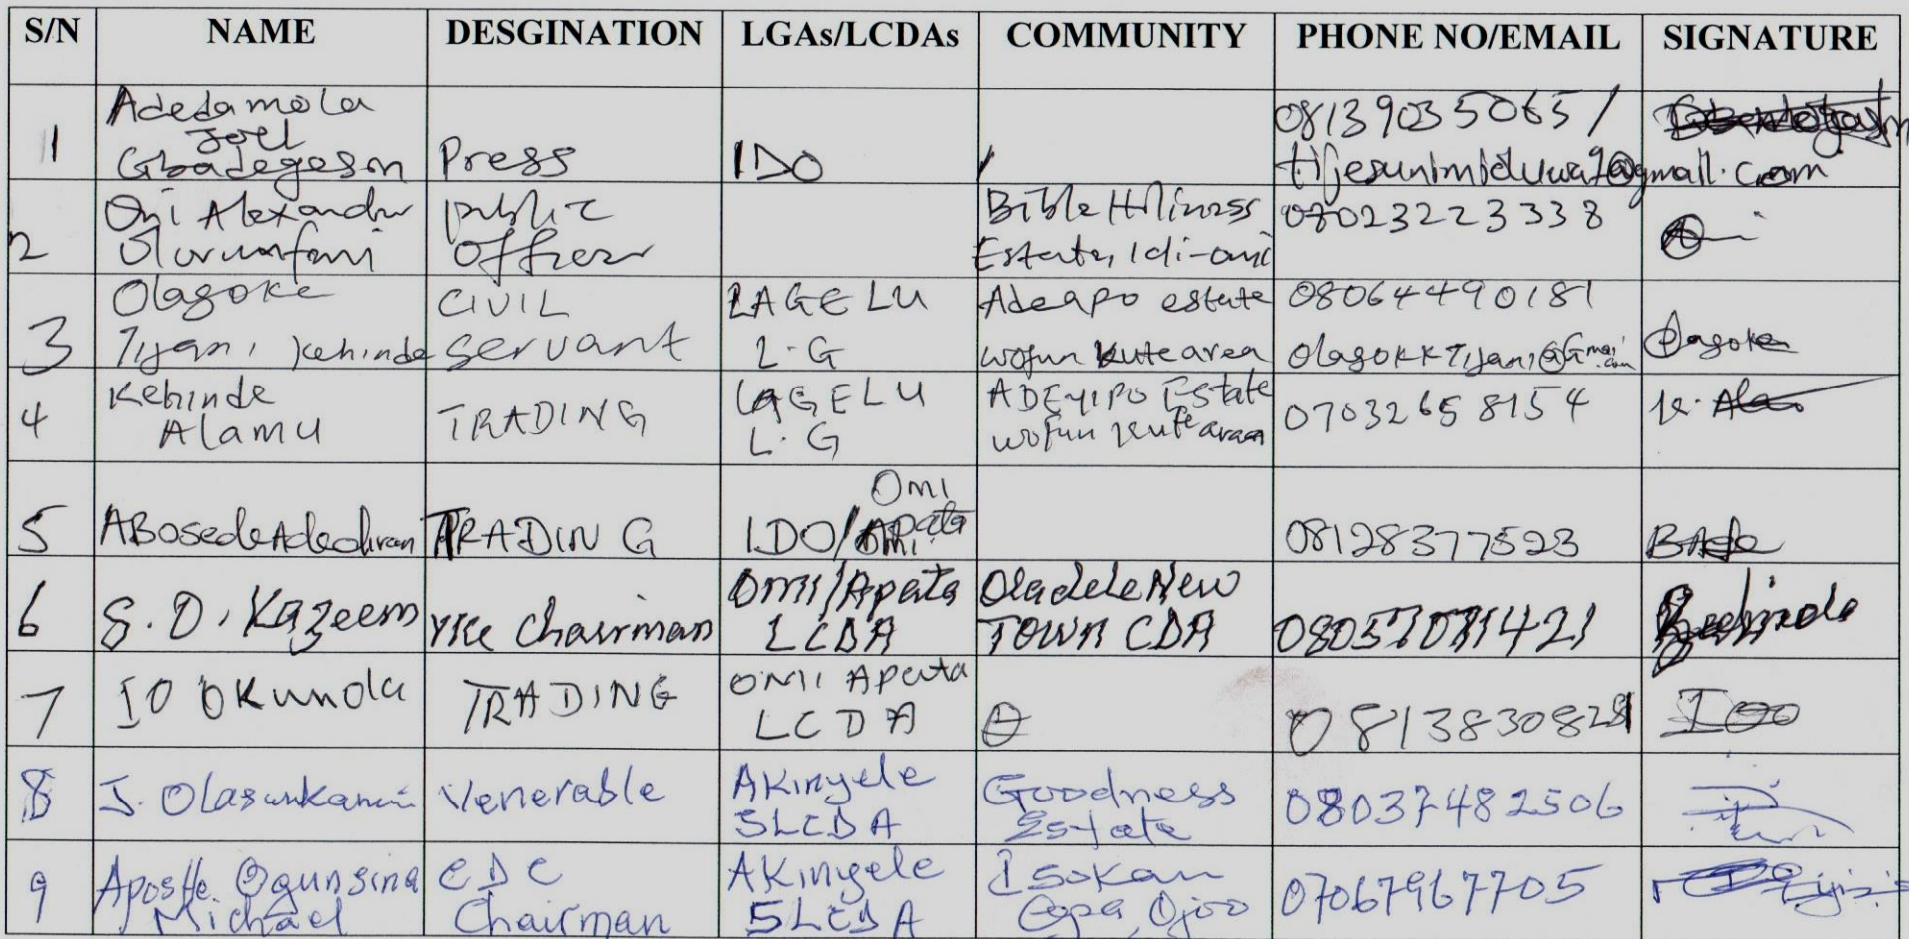 S/N NAME DESGINATION LGAs/LCDAs COMMUNITY PHONE NO/EMAIL SIGNATURE
1 Adedamola Joel Gbadegesin Press IDO 08139035065 / tijesunimiduwa9@gmail.com
2 Oni Alexander Olorunfemi public Officer Bible Holiness Estate, Idi-omi 07023223338
3 Olagoke Tijani Kehinde CIVIL servant LAGELU L.G Adeapo estate wofun kute area 08064490181 OlagokKTijani@Gmai.com Olagoke
4 Kehinde Alamu TRADING LAGELU L.G ADEYIPO Estate wofun kute area 07032658154
5 ABosede Adediran TRADING IDO/ Omi Apata 08128377523
6 S.O. Kazeem Vice Chairman Omi/Apata LCDA Oladele New TOWN CDA 08057081421
7 IO Okunola TRADING OMI APata LCDA 0813830828 IOO
8 J. Olasunkanmi Venerable AKinyele SLCDA Goodness Estate 08037482506
9 Apostle Ogunsina Michael CDC Chairman AKinyele SLCDA Isokan Ojoo 07067967705